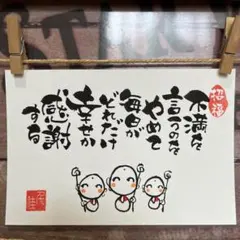 招福
不満を
言うのを
やめて
毎日が
どれだけ
幸せか
感謝
する